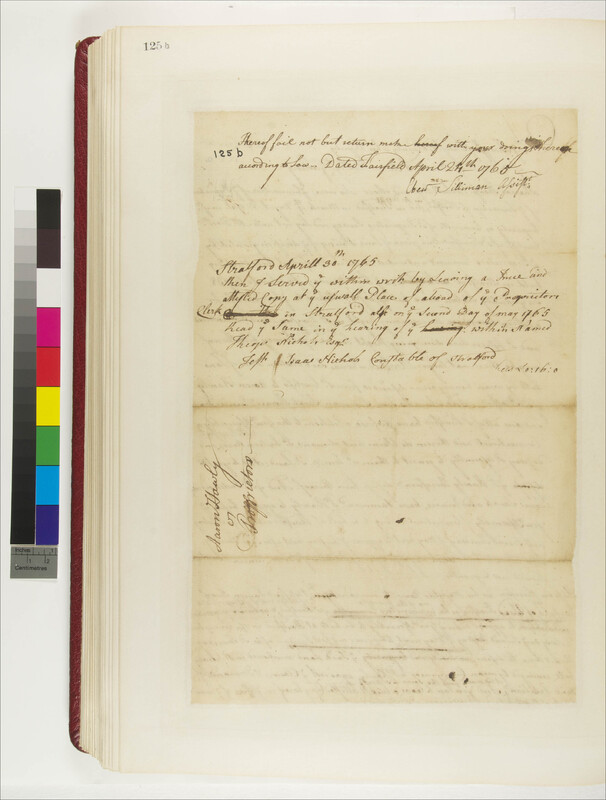 125 b
Thereof fail not but return make hereof with your doings thereof
125 b
according to Law - Dated Fairfield April 24th 1765
Eben.r Silliman Assist.t
Stratford Aprill 30th 1765
then I Served ye within writ by Leaving a true and
attested Copy at ye usuall Place of abode of ye Proprietors
Clerk in Stratford also on ye Second Day of may 1765
Read ye Same in ye hearing of ye within Named
Nichols Esqr
Test Isaac Nichols Constable of Stratford
Aaron Hawly
vs
Proprietors
Inches
1
2
Centimetres